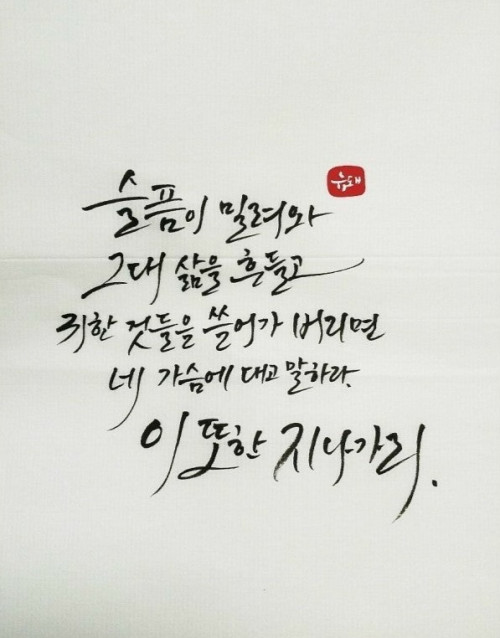 슬픔이 밀려와
그대 삶을 흔들고
귀한 것들을 쓸어가 버리면
네 가슴에 대고 말하라.
이 또한 지나가리.